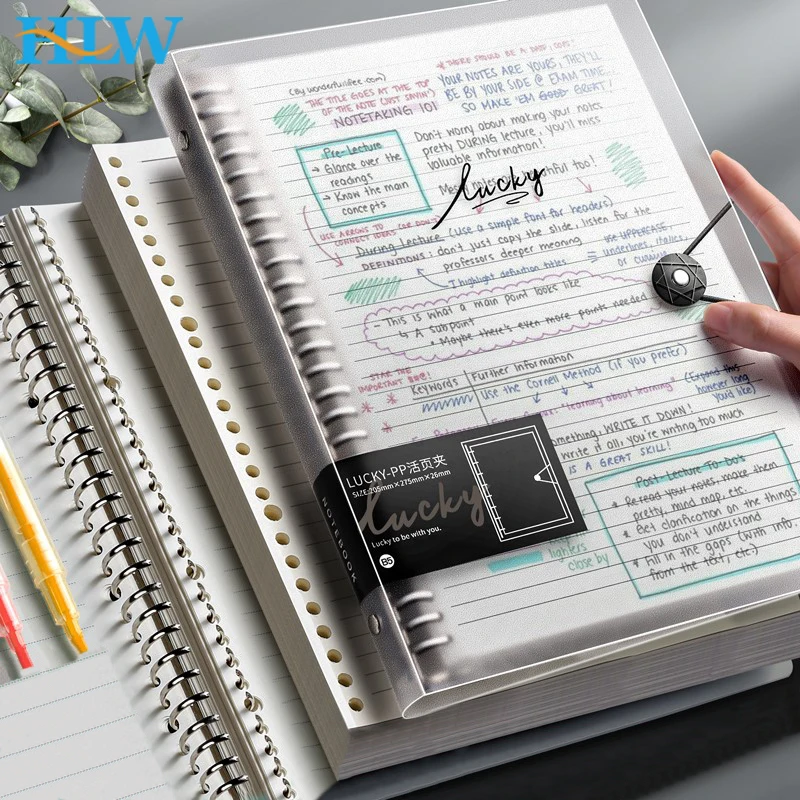 HLW
(By wonderfullifee.com)
THE TITLE GOES AT THE TOP
OF THE NOTE (JUST SAYIN')
NOTETAKING 101
* THERE SHOULD BE A DATE, TOO!
YOUR NOTES ARE YOURS, THEY'LL
BE BY YOUR SIDE @ EXAM TIME...
SO MAKE 'EM GOOD GREAT!
Pre-Lecture
→ Glance over the
readings
→ Know the main
concepts
Don't worry about making your notes
pretty DURING lecture, you'll miss
valuable information!
too!
lucky
USE ARROWS TO
CONNECT IDEAS (OR DON'T)
During Lecture (use a simple font for headers)
DEFINITIONS: don't just copy the slide, listen for the
professors deeper meaning
I highlight definition titles
= use UPPERCASE,
underlines, italics,
or cursive
- This is what a main point looks like
↳ A subpoint
* Maybe there's even more points needed
STAR THE
IMPORTANT
Keywords
Further Information
Use the Cornell Method (if you prefer)
"learning about learning"
(Expand this
however long
you'd like)
WRITE IT DOWN!
write it all, you're writing too much
IS A GREAT SKILL!
Post Lecture To-Do's
* Reread your notes, make them
pretty, mind map, etc.
* Get clarification on the things
you don't understand
* Fill in the gaps (with info.
from the text, etc.)
lighters
close by
LUCKY-PP活页夹
SIZE:205mm×275mm×26mm
lucky
Lucky to be with you.
B5
NOTEBOOK